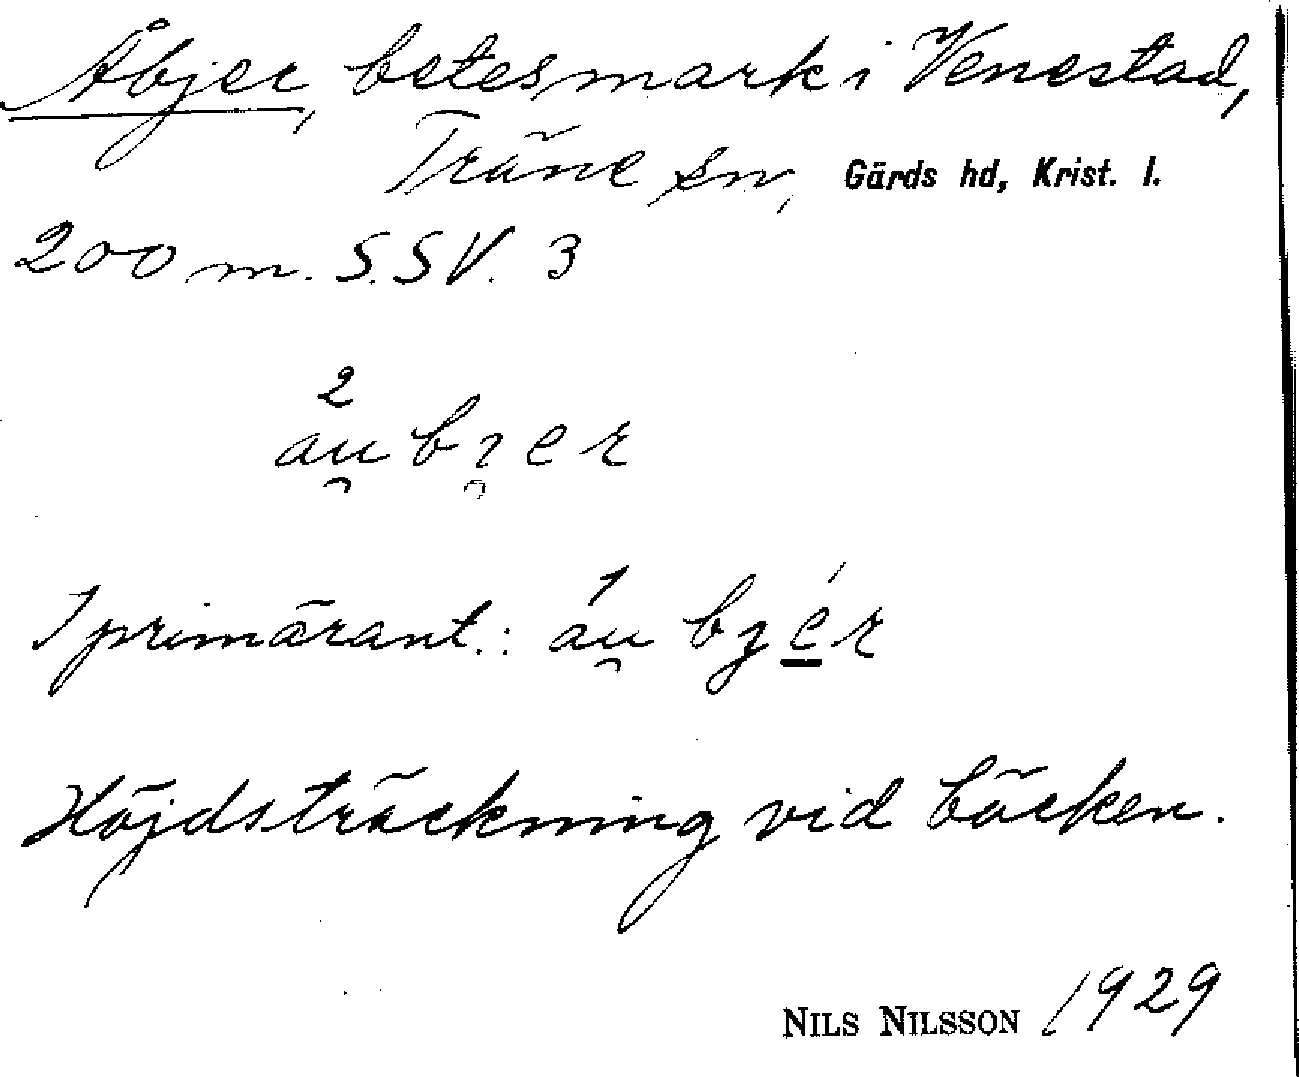 Åbjer, betesmark i Venestad,
Träne sn, Gärds hd, Krist. l.
200 m. S.SV. 3
2
au̯bı̯er
I primärant.: áu̯ bȷér
Höjdsträckning vid bäcken.
NILS NILSSON 1929